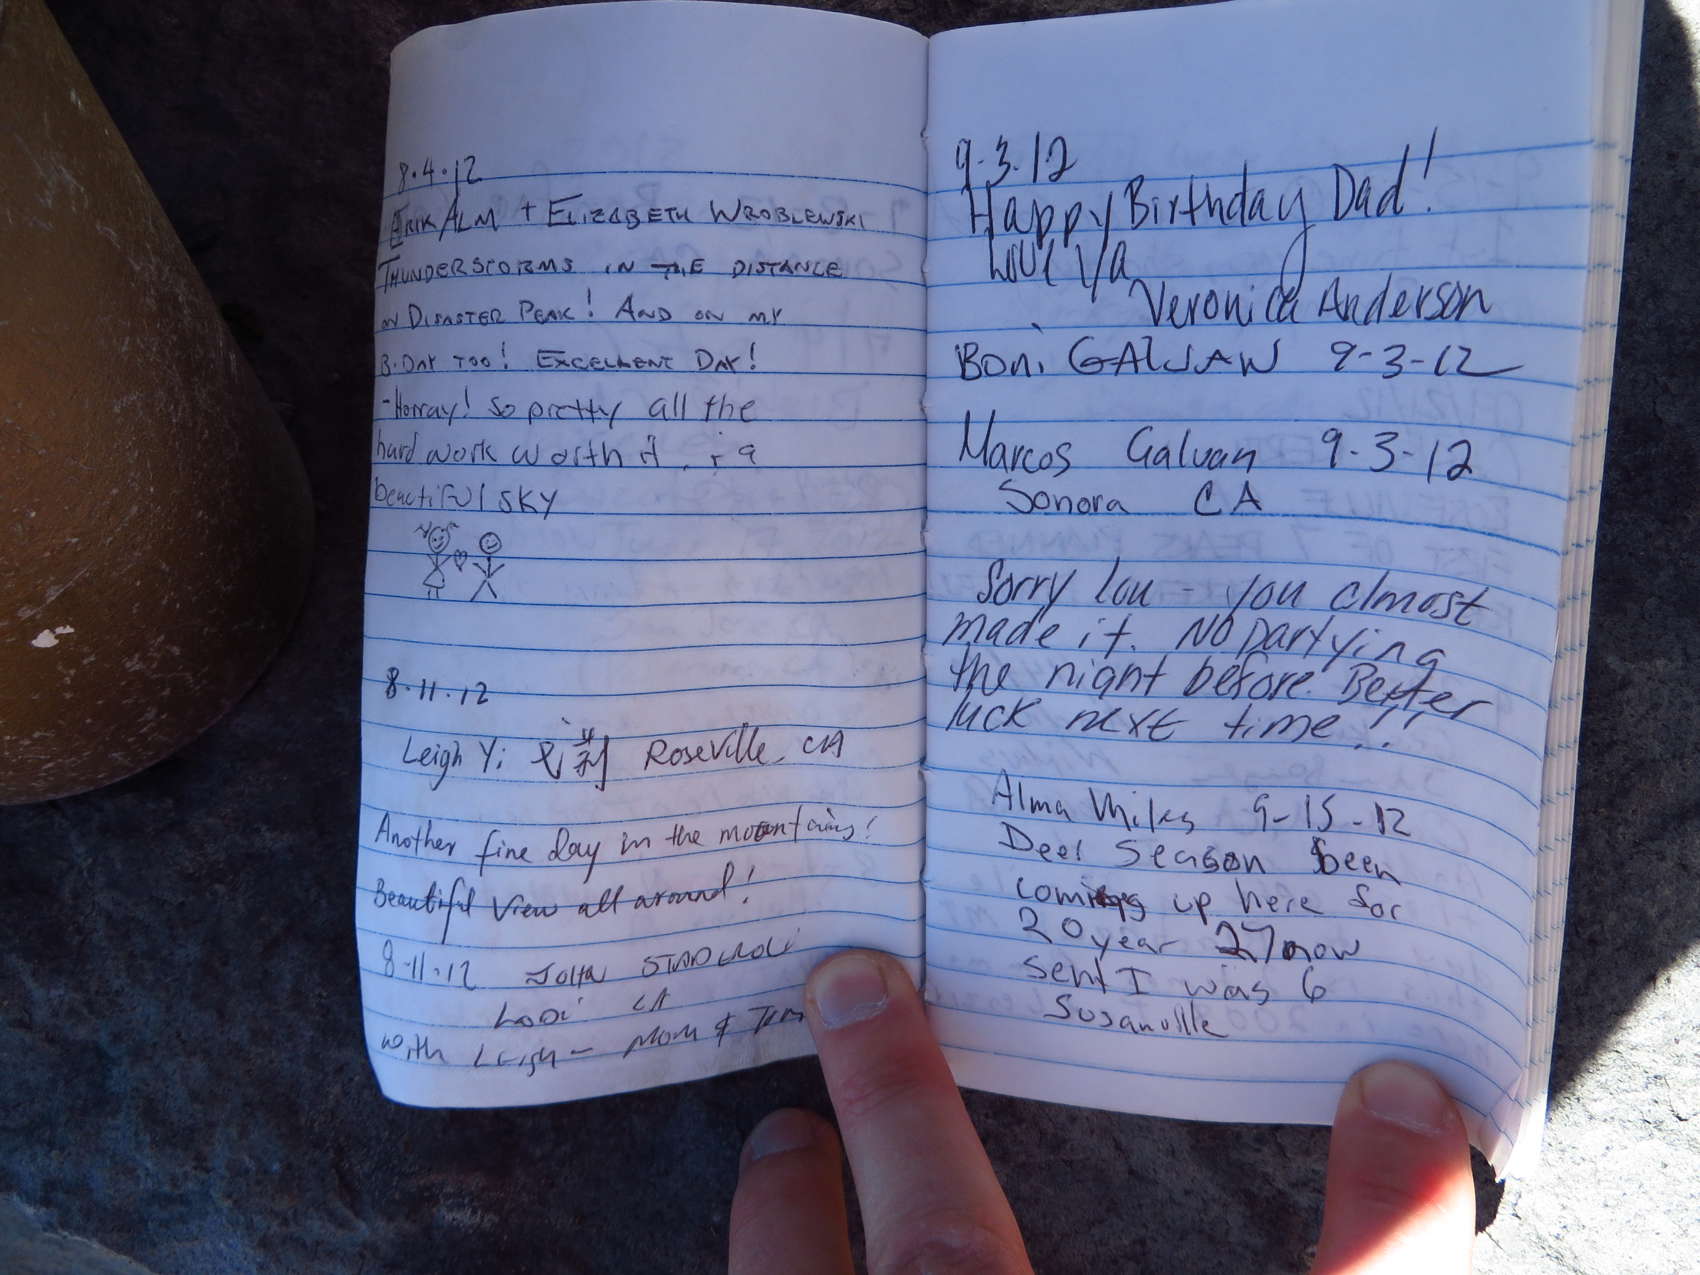 8.4.12
ERIK ALM + ELIZABETH WROBLEWSKI
THUNDERSTORMS IN THE DISTANCE
ON DISASTER PEAK! AND ON MY
B-DAY TOO! EXCELLENT DAY!
-Horray! so pretty all the
hard work worth it. + a
beautiful sky
8.11.12
Leigh Y. Roseville, CA
Another fine day in the mountains!
Beautiful view all around!
8-11-12
LODI CA
WITH LEIGH - MOM & TOM
9.3.12
Happy Birthday Dad!
Love Ya
Veronica Anderson
Boni GALVAN 9-3-12
Marcos Galvan 9-3-12
Sonora CA
Sorry Lou - you almost
made it. No partying
the night before. Better
luck next time!!
Alma Miles 9-15-12
Deer season been
coming up here for
20 year 27 now
sent I was 6
Susanville